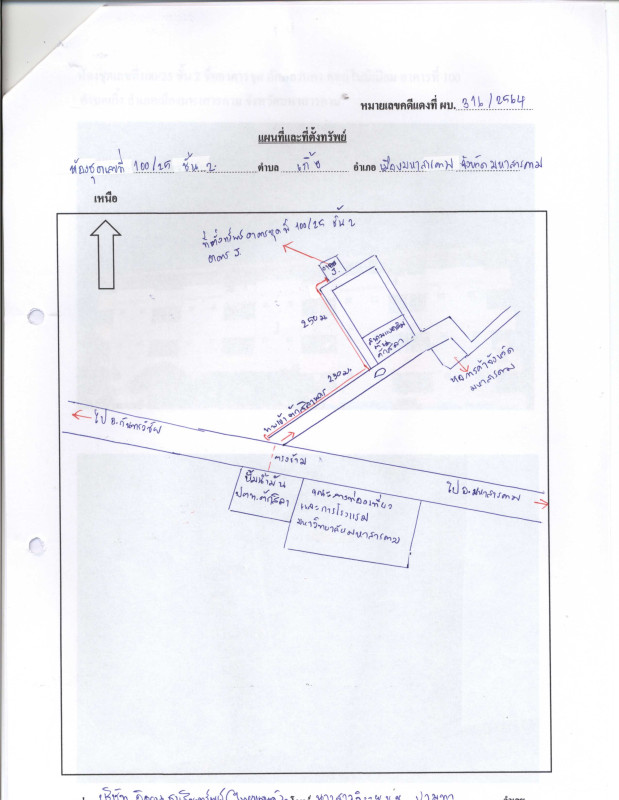 หมายเลขคดีแดงที่ ผบ. 316/2564
แผนที่และที่ตั้งทรัพย์
ห้องชุดเลขที่ 100/25 ชั้น 2 ตำบล เกิ้ง อำเภอ เมืองมหาสารคาม จังหวัด มหาสารคาม
เหนือ
ที่ตั้งทรัพย์ อาคารชุดที่ 100/25 ชั้น 2
อาคาร J.
อาคาร
J.
250 ม.
สนาม
ตักสิลา
290 ม.
หอการค้าจังหวัด
มหาสารคาม
ทางเข้าตักสิลานคร
ไป อ.กันทรวิชัย
ตรงข้าม
ปั๊มน้ำมัน
ปตท. ตักสิลา
คณะการท่องเที่ยว
และการโรงแรม
มหาวิทยาลัยมหาสารคาม
ไป อ.มหาสารคาม
บริษัท